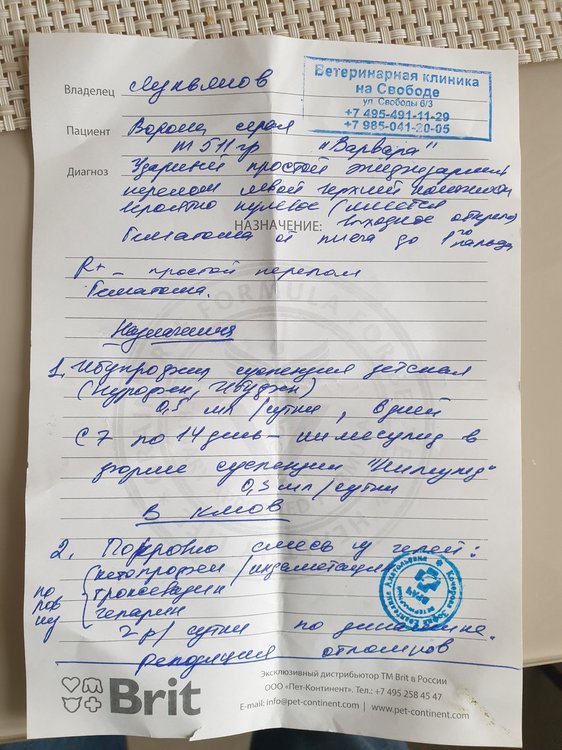 Владелец Лукьянов
Ветеринарная клиника
на Свободе
ул. Свободы 6/3
+7 495-491-11-29
+7 985-041-20-05
Пациент Ворона серая
m 511 гр "Варвара"
Диагноз простой
перелом левой
вероятно пулевое (имеется
НАЗНАЧЕНИЕ: выходное
Гематома от до 1го пальца
R+ - простой перелом
Гематома.
Назначения
1. Ибупрофен суспензия детская
(Нурофен, Ибуфен)
0,5 мл/сутки, 6 дней
С 7 по 14 день - нимесулид в
форме суспензии "Нимулид"
0,3 мл/сутки
В клюв
2. смесь из гелей:
поровну
кетопрофен/индометацин
троксевазин
гепарин
2 р/сутки по динамике.
репозиция отломков
Brit
Эксклюзивный дистрибьютор ТМ Brit в России
ООО «Пет-Континент». Тел.: +7 495 258 45 47
E-mail: info@pet-continent.com | www.pet-continent.com